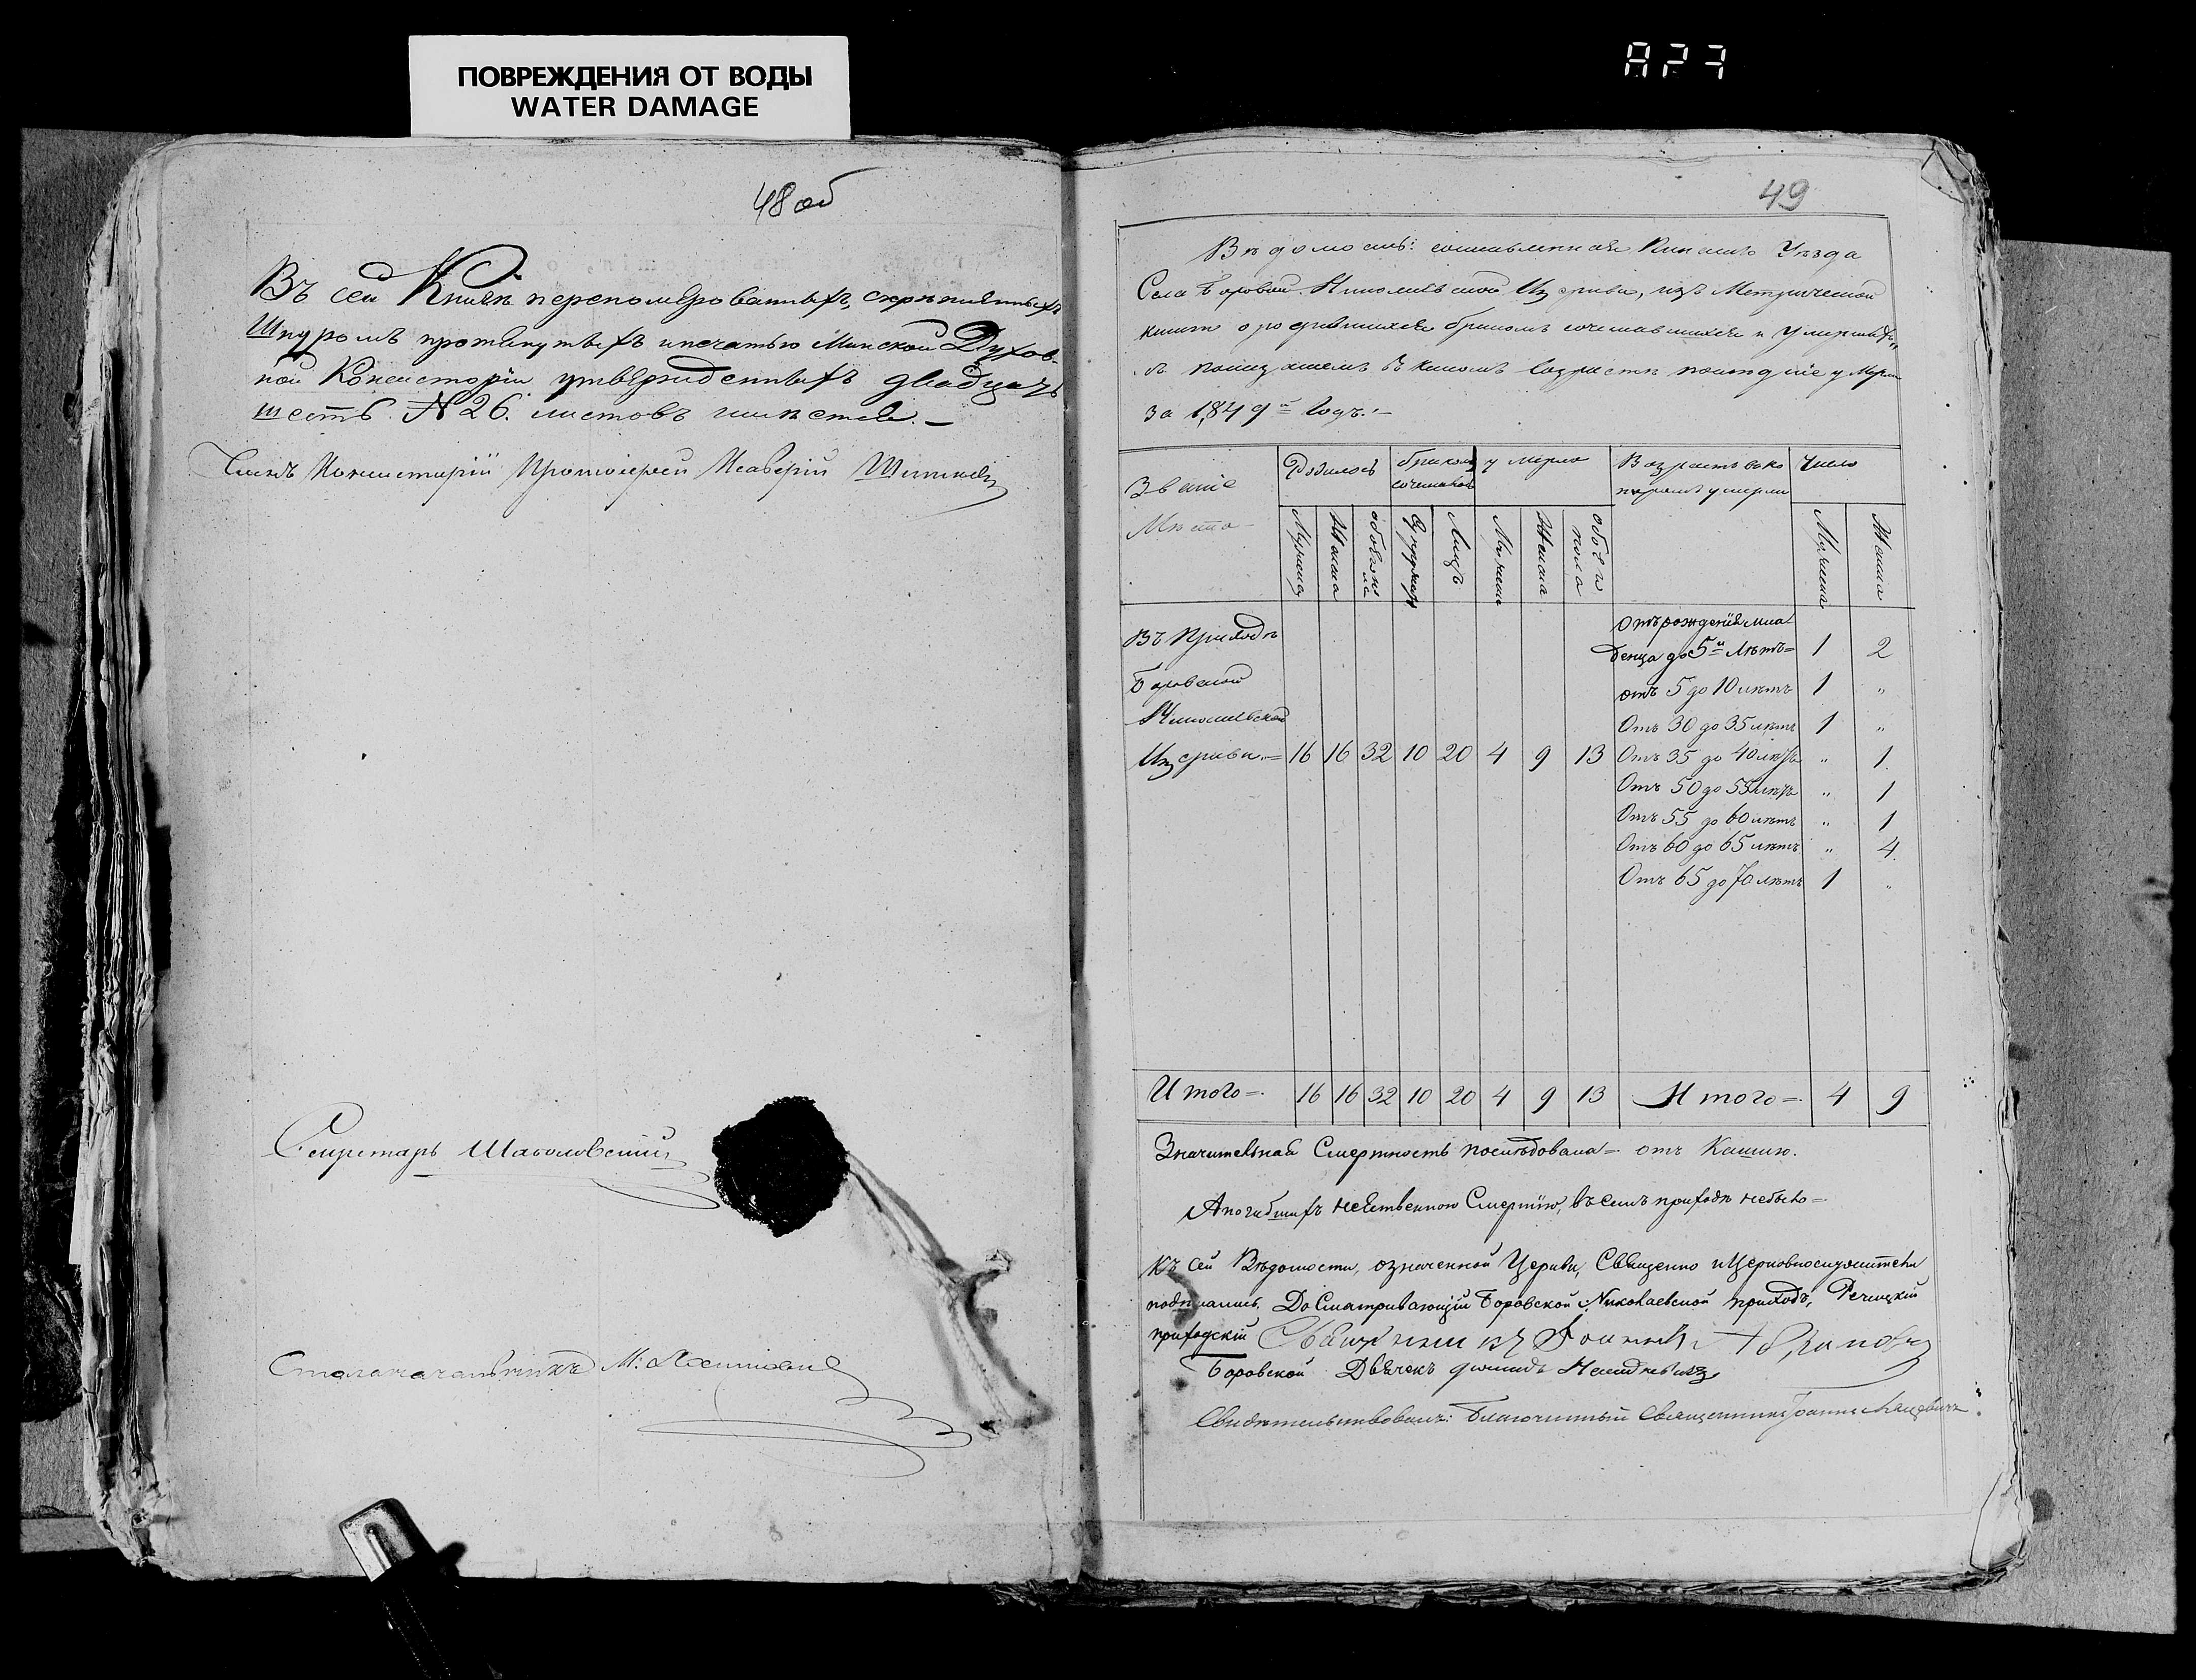 ПОВРЕЖДЕНИЯ ОТ ВОДЫ
WATER DAMAGE
A27
48 об
Въ сей Книгѣ переномерованныхъ, скрѣпленныхъ
Шнуромъ протянутыхъ и печатью Минской Духов-
ной Консисторіи утвержденныхъ двадцать
шесть № 26. листовъ
Членъ Консисторіи Протоіерей
Секретарь
Столоначальникъ М:
49
Вѣдомость: составленная Уѣзда
Села Боровой Николаевской Церкви, изъ Метрической
книги о родившихся бракомъ сочетавшихся и Умершихъ,
съ показаніемъ въ какомъ возрастѣ
за 1849й Годъ.
Званіе
Мѣста
Родилось
бракомъ сочетались
умерло
Возрастъ въ которомъ умерли
Число
Мужеска
Женска
обоего пола
Супружествъ
Лицъ
Мужеска
Женска
Обоего пола
Мужеска
Женска
Въ Приходѣ
Боровской
Николаевской
Церкви.= 16 16 32 10 20 4 9 13
Отъ рожденія мла
денца до 5й Лѣтъ= 1 2
отъ 5 до 10 лѣтъ 1 "
Отъ 30 до 35 лѣтъ 1 "
Отъ 35 до 40 лѣтъ " 1
Отъ 50 до 55 лѣтъ " 1
Отъ 55 до 60 лѣтъ " 1
Отъ 60 до 65 лѣтъ " 4
Отъ 65 до 70 лѣтъ 1 "
Итого=. 16 16 32 10 20 4 9 13 Итого=. 4 9
Значительная Смертность послѣдовала=. отъ Кашлю.
А погибшихъ Смертію, въ семъ приходѣ небыло=.
Къ сей Вѣдомости, означенной Церкви, Священно и Церковнослужители
подписались. Досматривающій Боровской Николаевской приходъ, Речицкій
приходскій Священникъ
Боровской Дьячекъ
Свидѣтельствовалъ: Благочинный Священникъ Іоаннъ